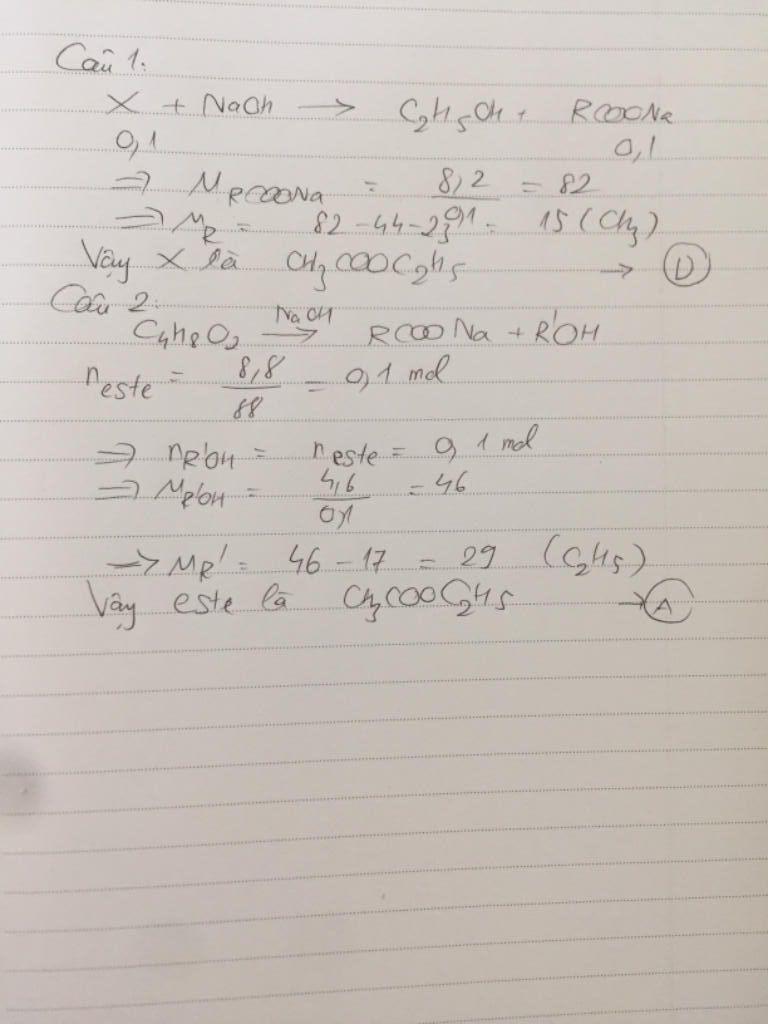 Câu 1:
X + NaOH → C₂H₅OH + RCOONa
0,1 0,1
⇒ M_RCOONa = 8,2 / 0,1 = 82
⇒ M_R = 82 - 44 - 23 = 15 (CH₃)
Vậy X là CH₃COOC₂H₅ → D
Câu 2:
C₄H₈O₂ —NaOH→ RCOONa + R'OH
n_este = 8,8 / 88 = 0,1 mol
⇒ n_R'OH = n_este = 0,1 mol
⇒ M_R'OH = 4,6 / 0,1 = 46
→ M_R' = 46 - 17 = 29 (C₂H₅)
Vậy este là CH₃COOC₂H₅ → A